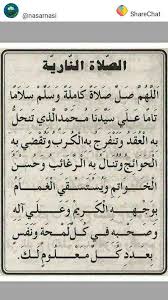 @nasarnasi
ShareChat
الصلاة النارية
اللهم صل صلاة كاملة وسلم سلاما
تاما على سيدنا محمد الذي تنحل
به العقد وتنفرج به الكرب وتقضى به
الحوائج وتنال به الرغائب وحسن
الخواتم ويستسقى الغمام
بوجهه الكريم وعلى آله
وصحبه في كل لمحة ونفس
بعدد كل معلوم لك